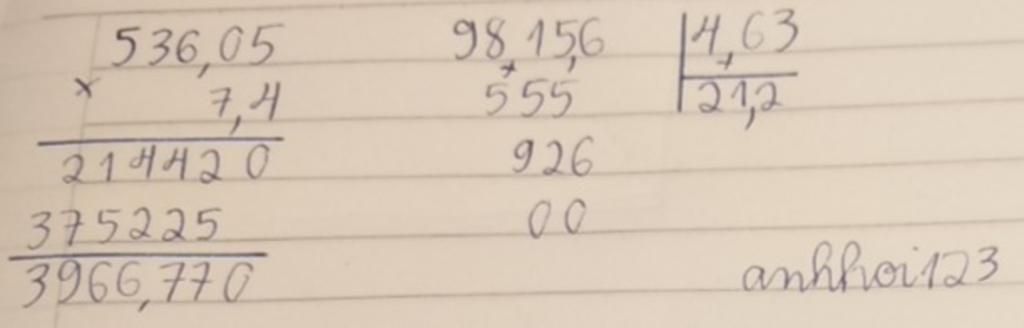 536,05
× 7,4
214420
375225
3966,770
98,15,6 4,63
555 21,2
926
00
anhhoi123